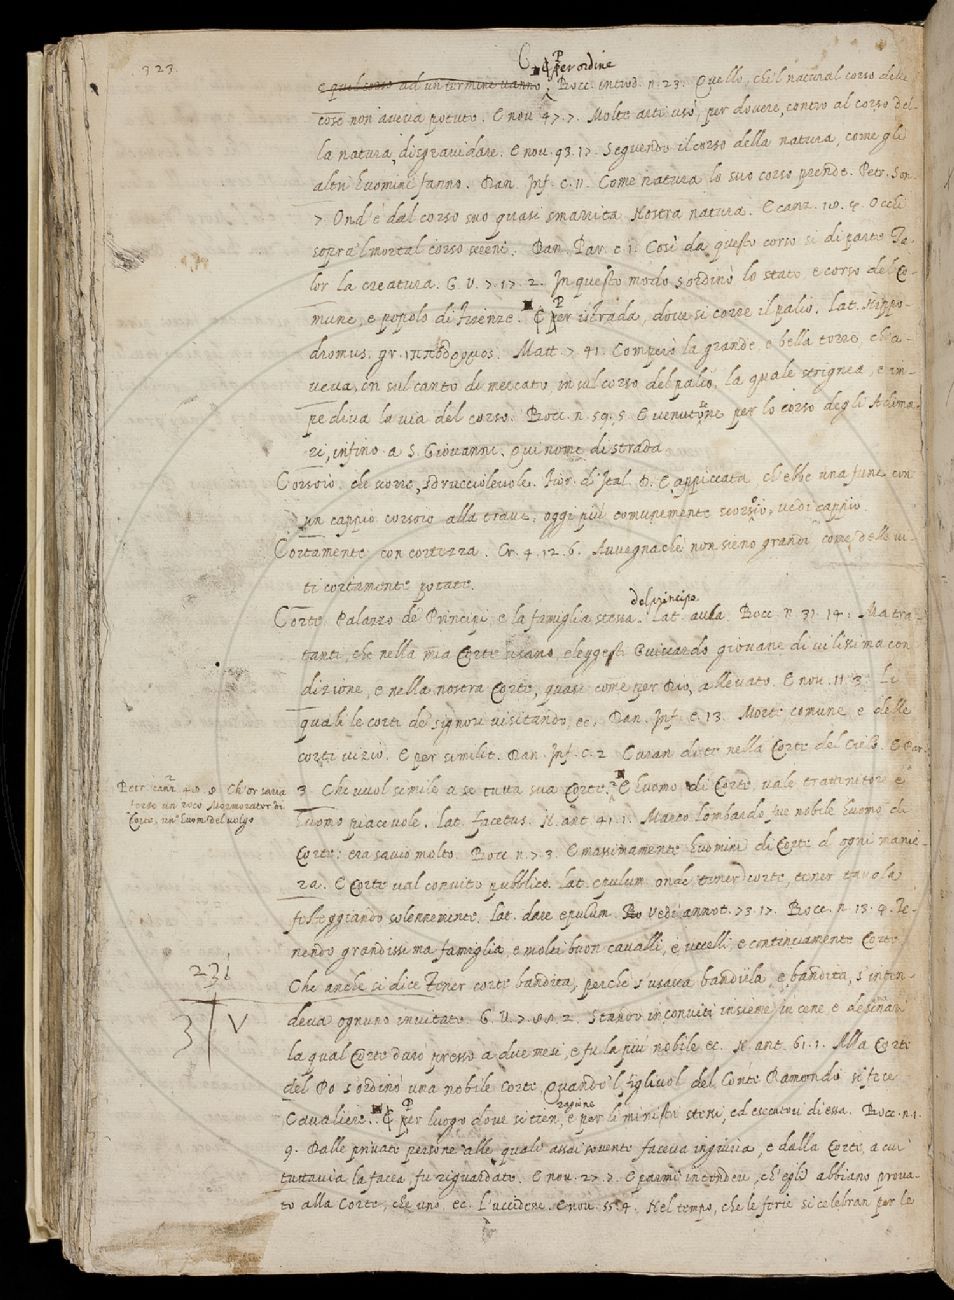 323
C 4 Per ordine
e quel corso ad un termine vanno. Bocc. introd. n. 23. Quello, che'l natural corso delle
cose non aveva potuto. E nov. 47. 7. Molte arti usò, per dovere, contro al corso del-
la natura, disgravidare. E nov. 93. 17. Seguendo il corso della natura, come gli
altri huomini fanno. Dan. Inf. c. 11. Come natura lo suo corso prende. Petr. Son.
7. Ond'è dal corso suo quasi smarrita Nostra natura. E canz. Occhi
sopra'l mortal corso sereni. Dan. Par. c. 1. Così da questo corso si diparte Ta-
lor la creatura. G. V. 7. 17. 2. In questo modo s'ordinò lo stato e corso del Co-
mune, e popolo di Firenze. E per istrada, dove si corre il palio. Lat. Hippo-
dromus. gr. ἱππόδρομος. Matt. 7. 41. Compiè la grande, e bella torre, ch'a-
veva, in sul canto di mercato in sul corso del palio, la quale strignea, e im-
pediva la via del corso. Bocc. n. 59. 5. E venutone per lo corso degli Adima-
ri, infino a S. Giovanni. Qui nome di strada
Corsoio. che corre, sdrucciolevole. Fior. di Ital. D. E appiccata, ch'ebbe una fune con
un cappio corsoio alla trave. oggi più comunemente scorsoio, vedi cappio.
Cortamente con cortezza. Cr. 4. 12. 6. Avvegnachè non sieno grandi come delle vi-
ti cortamente potate.
Corte. Palazzo de' Principi, e la famiglia stessa del principe. Lat. aula. Bocc. n. 31. 14. Ma tra-
tanti, che nella mia Corte usano, elegesti Guiscardo giovane di vilissima con
dizione, e nella nostra Corte, quasi come per Dio, allevato. E nov. 11. 3. Li
quali le corti de' signori visitando, ec. Dan. Inf. c. 13. Morte comune, e delle
corti vizio. E per similit. Dan. Inf. c. 2. Curan di te nella Corte del Cielo. E Par.
3. Che vuol simile a se tutta sua Corte. E huomo di Corte, vale trattenitore e
huomo piacevole. Lat. facetus. N. ant. 41. 1. Marco lombardo fue nobile huomo di
Corte: era savio molto. Bocc. n. 7. 3. E massimamente huomini di Corte d'ogni manie-
ra. E Corte val convito pubblico. Lat. epulum onde tener corte, tener tavola
festeggiando solennemente. Lat. dare epulum. Vedi annot. 73. 17. Bocc. n. 13. 4. Te-
nendo grandissima famiglia, e molti buon cavalli, e uccelli, e continuamente Corte
Che anche si dice Tener corte bandita, perchè s'usava bandilla, e, bandita, s'inten-
deva ognuno invitato. G. V. 7. 88. 2. Stando in conviti insieme, in cene, e desinari
la qual Corte durò presso a due mesi, e fu la più nobile ec. N. ant. 61. 1. Alla Corte
del Po s'ordinò una nobile Corte Quando'l figliuol del Conte Ramondo si fece
Cavaliere. E Per luogo dove si tien ragione, e per li ministri stessi, ed esecutori di essa. Bocc. n. 1.
9. Dalle private persone alle quali assai sovente faceva ingiuria, e dalla Corte, a cui
tuttavia la facea, fu riguardato. E nov. 27. 7. E parmi intendere, ch'egli abbiano prova-
to alla Corte, che uno, ec. l'uccidesse. E nov. 55. 4. Nel tempo, che le ferie si celebran per le
Petr. canz. 40. 8. Ch'or saria
forse un roco Mormorator di
Corti, un huom del volgo
231
3 V